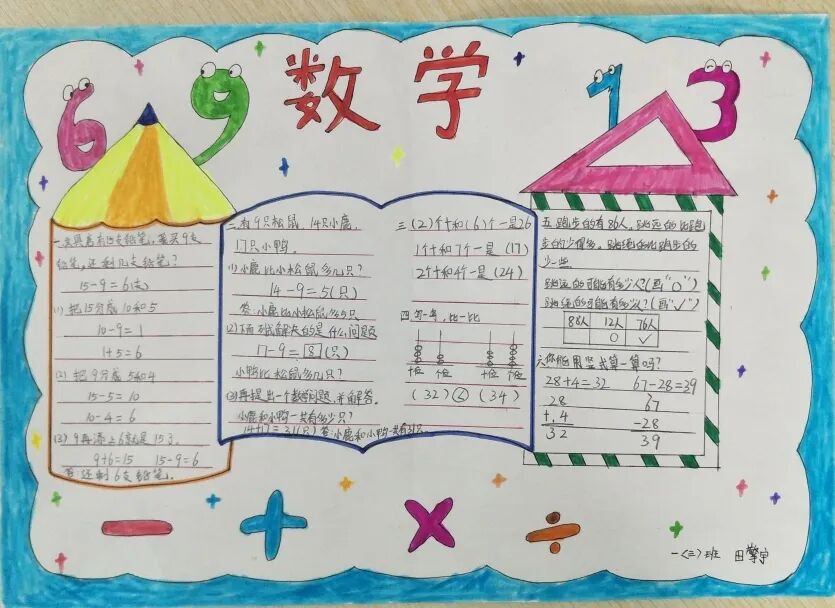 6 9 数学 1 3
一、文具店有15支铅笔,要买9支
铅笔,还剩几支铅笔?
15-9=6(支)
(1)把15分成10和5
10-9=1
1+5=6
(2)把9分成5和4
15-5=10
10-4=6
(3)9再添上6就是15了。
9+6=15 15-9=6
答:还剩6支铅笔。
二、有9只松鼠,14只小鹿,
17只小鸭。
(1)小鹿比小松鼠多几只?
14-9=5(只)
答:小鹿比小松鼠多5只
(2)下面算式解决的是什么问题
17-9=8(只)
小鸭比松鼠多几只?
(3)再提出一个数学问题,并解答。
小鹿和小鸭一共有多少只?
14+17=31(只)答:小鹿和小鸭一共有31只
三(2)个十和(6)个一是26
1个十和7个一是(17)
2个十和4个一是(24)
四、写一写,比一比
十位 个位 十位 个位
(32)<(34)
五、跑步的有86人,跳远的比跑
步的少得多。跳绳的比跑步的
少一些
跳远的可能有多少人?(画"○")
跳绳的可能有多少人?(画"√")
86人 12人 76人
○ √
六、你能用竖式算一算吗?
28+4=32 67-28=39
28 67
+ 4 -28
32 39
- + × ÷
一(三)班 田擎宇